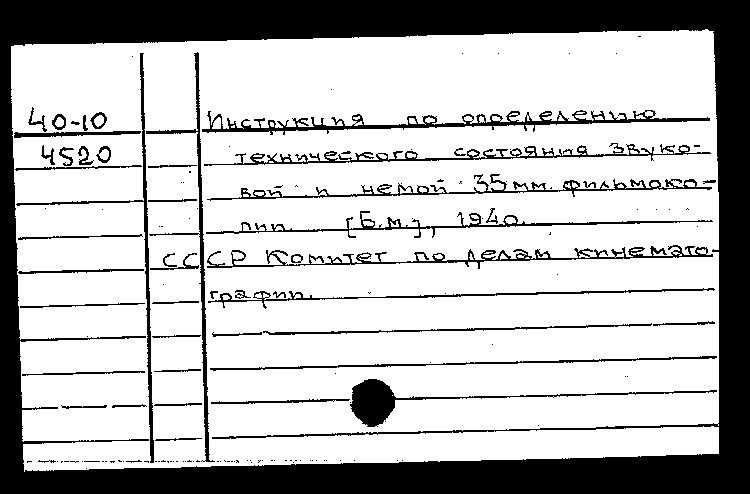 40-10 Инструкция по определению
4520 технического состояния звуко-
вой и немой 35мм. фильмоко-
пии. [Б.м.], 1940.
СССР Комитет по делам кинемато-
графии.